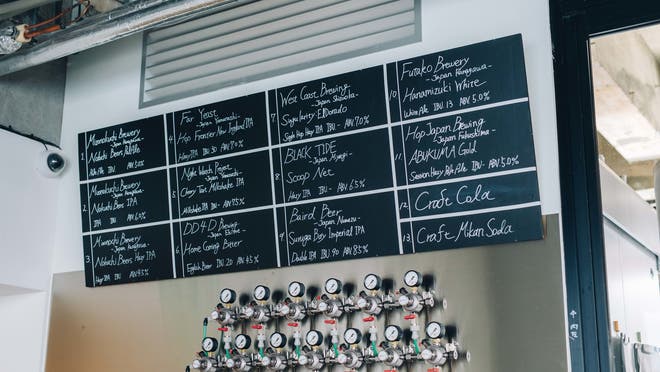 1
Brewery
- Japan
Nobuchi Beers
Pale Ale IBU ABV 5.0%
2
Brewery
- Japan
Nobuchi Beers IPA
IPA IBU ABV 6.0%
3
Brewery
- Japan
Nobuchi Beers Hop IPA
Hazy IPA IBU ABV 4.5%
4
Far Yeast
- Japan Yamanashi -
Hop Frontier New England IPA
Hazy IPA IBU 30 ABV 7.0%
5
Project
- Japan
Cherry Tart Milkshake IPA
Milkshake IPA IBU - ABV 7.5%
6
DD4D Brewing
- Japan Ehime -
Home Going Bitter
English Bitter IBU 20 ABV 4.5%
7
West Coast Brewing
- Japan Shizuoka -
Singularity El Dorado
Single Hop Hazy IPA IBU - ABV 7.0%
8
BLACK TIDE
- Japan Miyagi -
Scoop Net
IBU - ABV 6.5%
9
Baird Beer
- Japan Numazu -
Suruga Bay Imperial IPA
Double IPA IBU 90 ABV 8.5%
10
Futako Brewery
- Japan Kanagawa -
Hanamizuki White
White Ale IBU 13 ABV 5.0%
11
HopJapan Brewing
- Japan Fukushima -
ABUKUMA Gold
Session Hazy Pale Ale IBU - ABV 5.0%
12
Craft Cola
13
Craft Mikan Soda